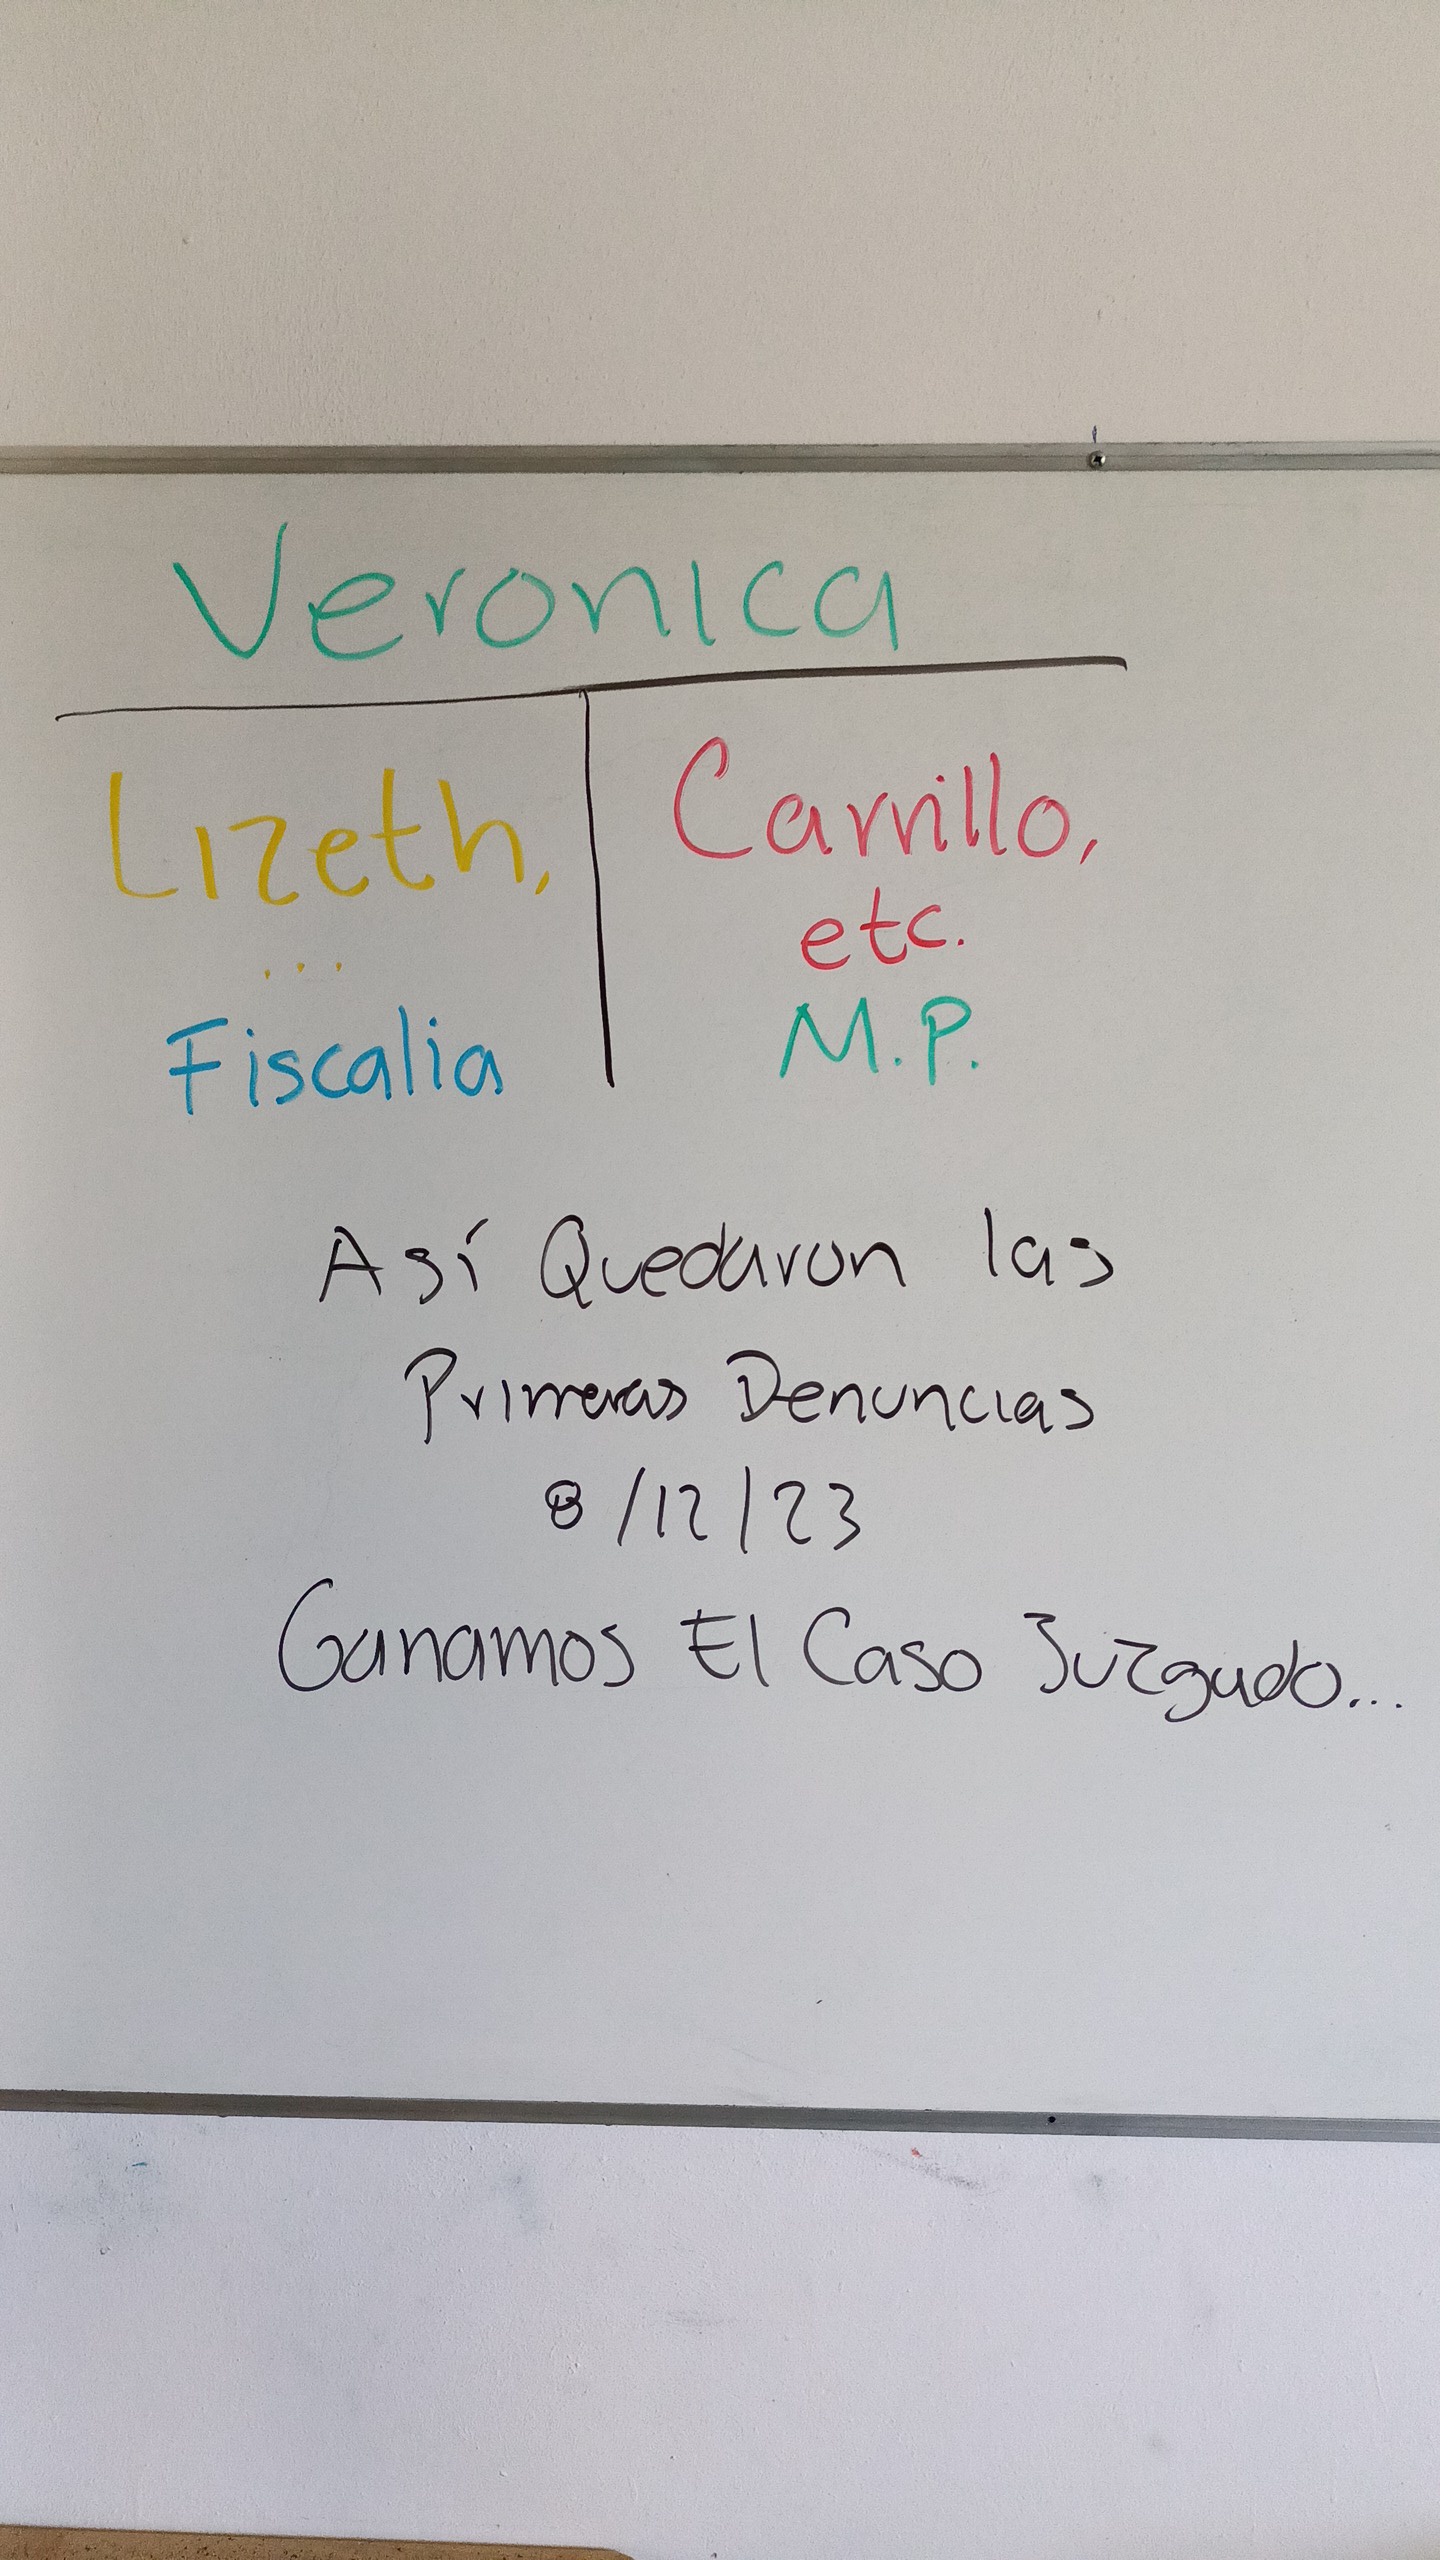 Veronica
Lizeth,
...
Fiscalia
Carrillo,
etc.
M.P.
Así Quedaron las
Primeras Denuncias
8/12/23
Ganamos El Caso Juzgado...